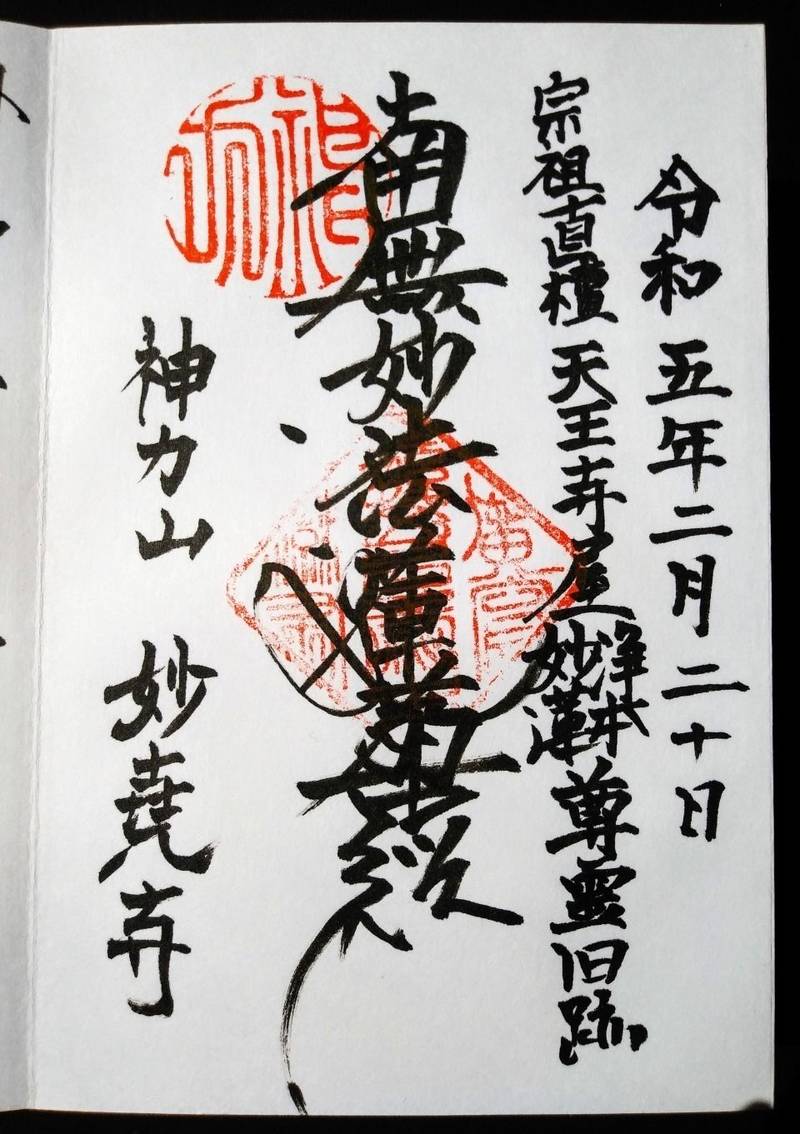 令和五年二月二十日
宗祖直檀 天王寺屋 浄本 妙蓮 尊霊旧跡
南無妙法蓮華経
神力山 妙堯寺